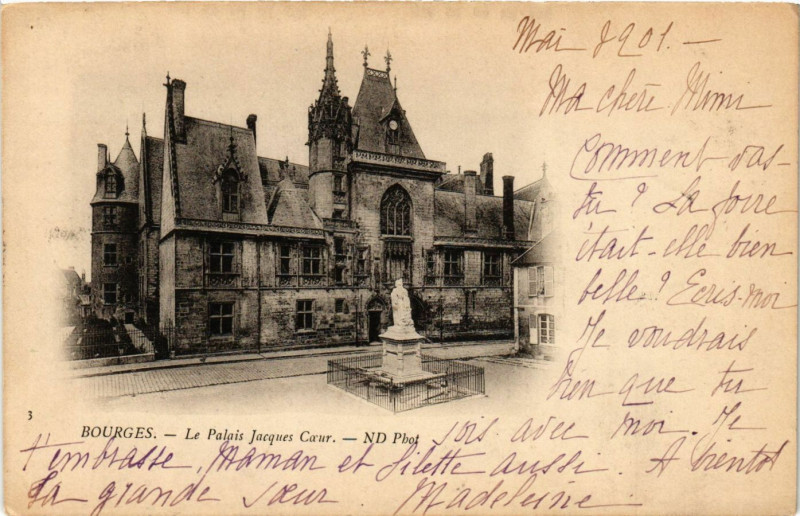 Mai 1901. —
Ma chère Mimi
Comment vas-
tu ? La foire
était-elle bien
belle ? Ecris-moi
Je voudrais
bien que tu
sois avec moi. Je
t'embrasse, Maman et Filette aussi. A bientôt
Ta grande sœur. Madeleine
3
BOURGES. — Le Palais Jacques Cœur. — ND Phot